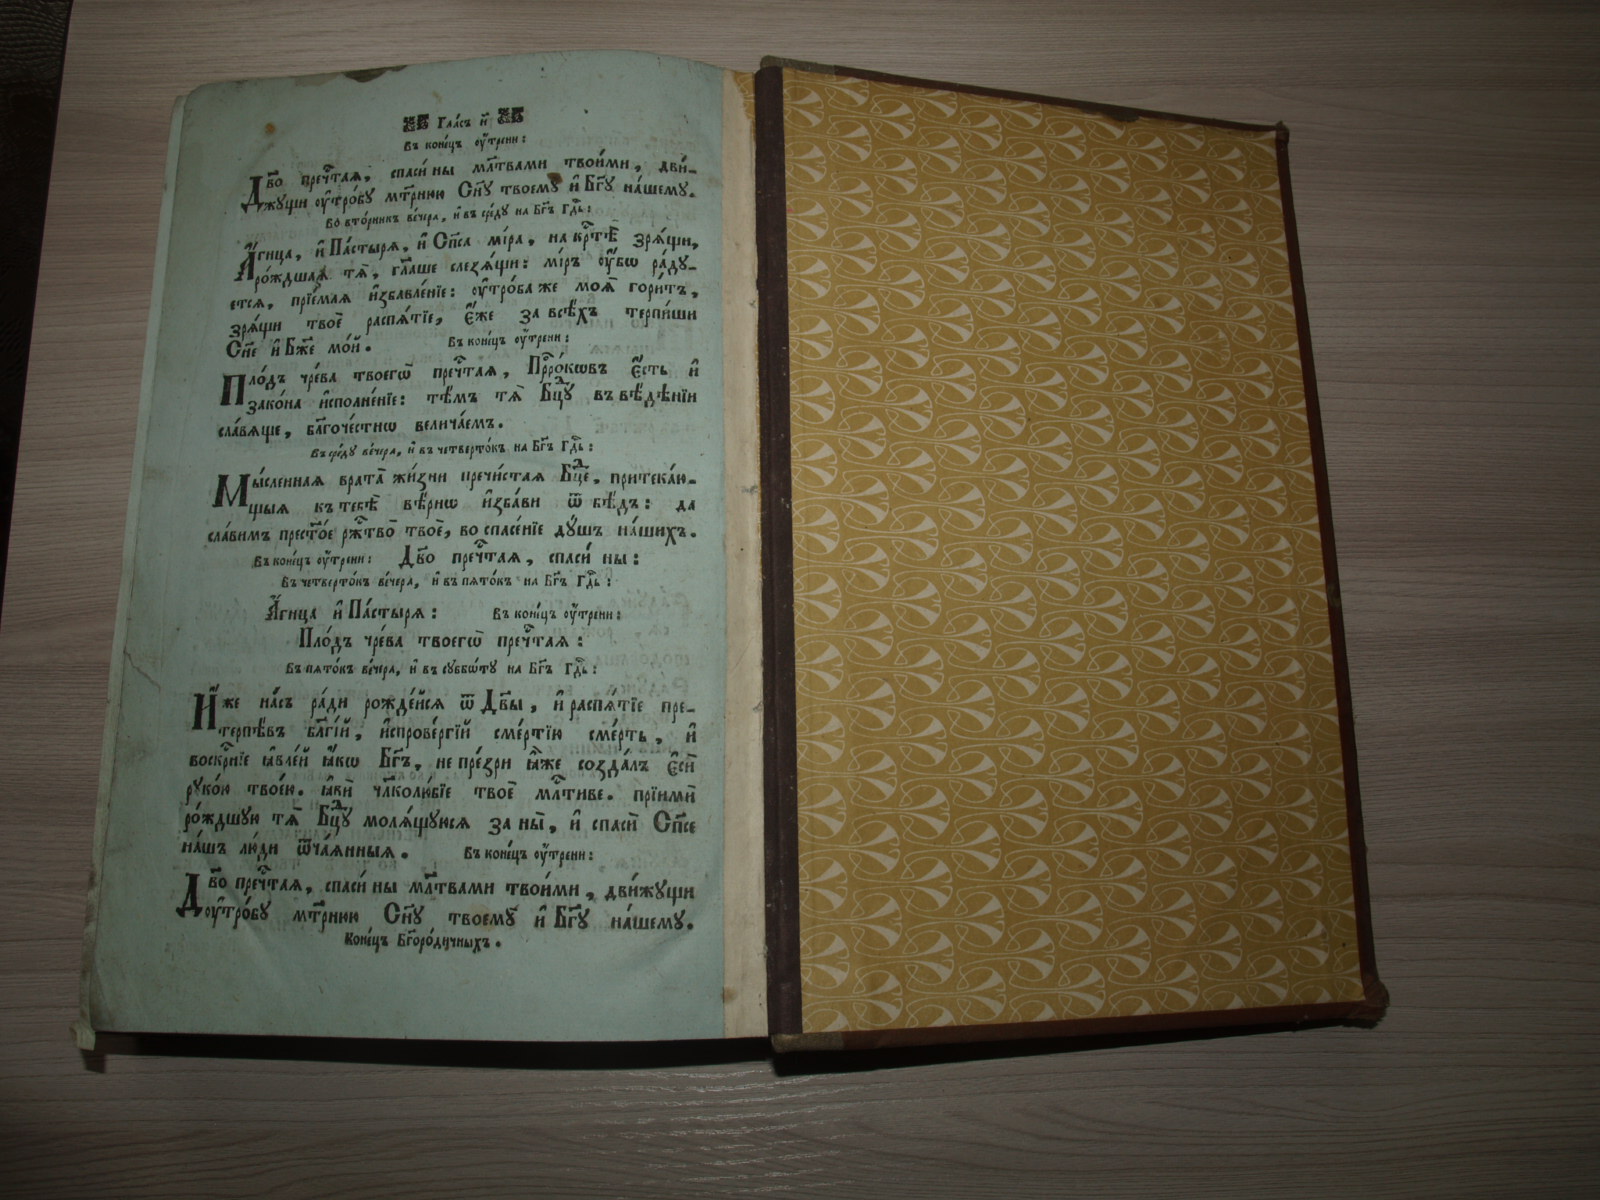 Гла́съ и҃
Въ коне́цъ оу҆́трени:
Дв҃о пречⷭ҇тая, спаси́ ны мл҃твами твои́ми, дви́-
жущи оу҆тро́бу мт҃рнюю Сн҃у твоему и҆ Бг҃у на́шему.
Во вто́рникъ ве́чера, и҆ въ сре́ду на Бг҃ъ Гдⷭ҇ь:
А҆́гница, и҆ Па́стыря, и҆ Сп҃са мі́ра, на крⷭ҇тѣ̀ зря́щи,
ро́ждшая тя̀, гл҃аше слезя́щи: мі́ръ оу҆́бѡ ра́ду-
ется, прїе́мая и҆збавле́нїе: оу҆тро́ба же моя̀ гори́тъ,
зря́щи твоѐ распя́тїе, є҆́же за всѣ́хъ терпи́ши
Сн҃е и҆ Бж҃е мо́й.
Въ коне́цъ оу҆́трени:
Пло́дъ чре́ва твоегѡ̀ пречⷭ҇тая, Прⷪ҇ро́кѡвъ є҆́сть и҆
зако́на и҆сполне́нїе: тѣ́мъ тя̀ Бцⷣу въ вѣ́дѣнїи
сла́вяще, бл҃гоче́стнѡ велича́емъ.
Въ сре́ду ве́чера, и҆ въ четверто́къ на Бг҃ъ Гдⷭ҇ь:
Мы́сленная врата̀ жи́зни пречи́стая Бцⷣе, притека́ю-
щыя къ тебѣ̀ вѣ́рнѡ и҆зба́ви ѿ бѣ́дъ: да
сла́вимъ прест҃о́е ржⷭ҇тво̀ твоѐ, во спасе́нїе ду́шъ на́шихъ.
Въ коне́цъ оу҆́трени: Дв҃о пречⷭ҇тая, спаси́ ны:
Въ четверто́къ ве́чера, и҆ въ пято́къ на Бг҃ъ Гдⷭ҇ь:
А҆́гница и҆ Па́стыря: Въ коне́цъ оу҆́трени:
Пло́дъ чре́ва твоегѡ̀ пречⷭ҇тая:
Въ пято́къ ве́чера, и҆ въ суббѡ́ту на Бг҃ъ Гдⷭ҇ь:
И҆́же на́съ ра́ди рожде́йся ѿ Дв҃ы, и҆ распя́тїе пре-
терпѣ́въ бл҃гі́й, и҆спрове́ргїй сме́ртїю сме́рть, и҆
воскрⷭ҇нїе ꙗ҆вле́й ꙗ҆́кѡ Бг҃ъ, не пре́зри ꙗ҆̀же созда́лъ є҆сѝ
руко́ю твое́ю. ꙗ҆вѝ чл҃колю́бїе твоѐ мл҃тиве. прїимѝ
ро́ждшую тя̀ Бцⷣу моля́щуюся за ны̀, и҆ спасѝ Сп҃се
на́шъ лю́ди ѿча́янныя.
Въ коне́цъ оу҆́трени:
Дв҃о пречⷭ҇тая, спаси́ ны мл҃твами твои́ми, дви́жущи
оу҆тро́бу мт҃рнюю Сн҃у твоемꙋ̀ и҆ Бг҃у на́шему.
Коне́цъ Бг҃оро́дичныхъ.